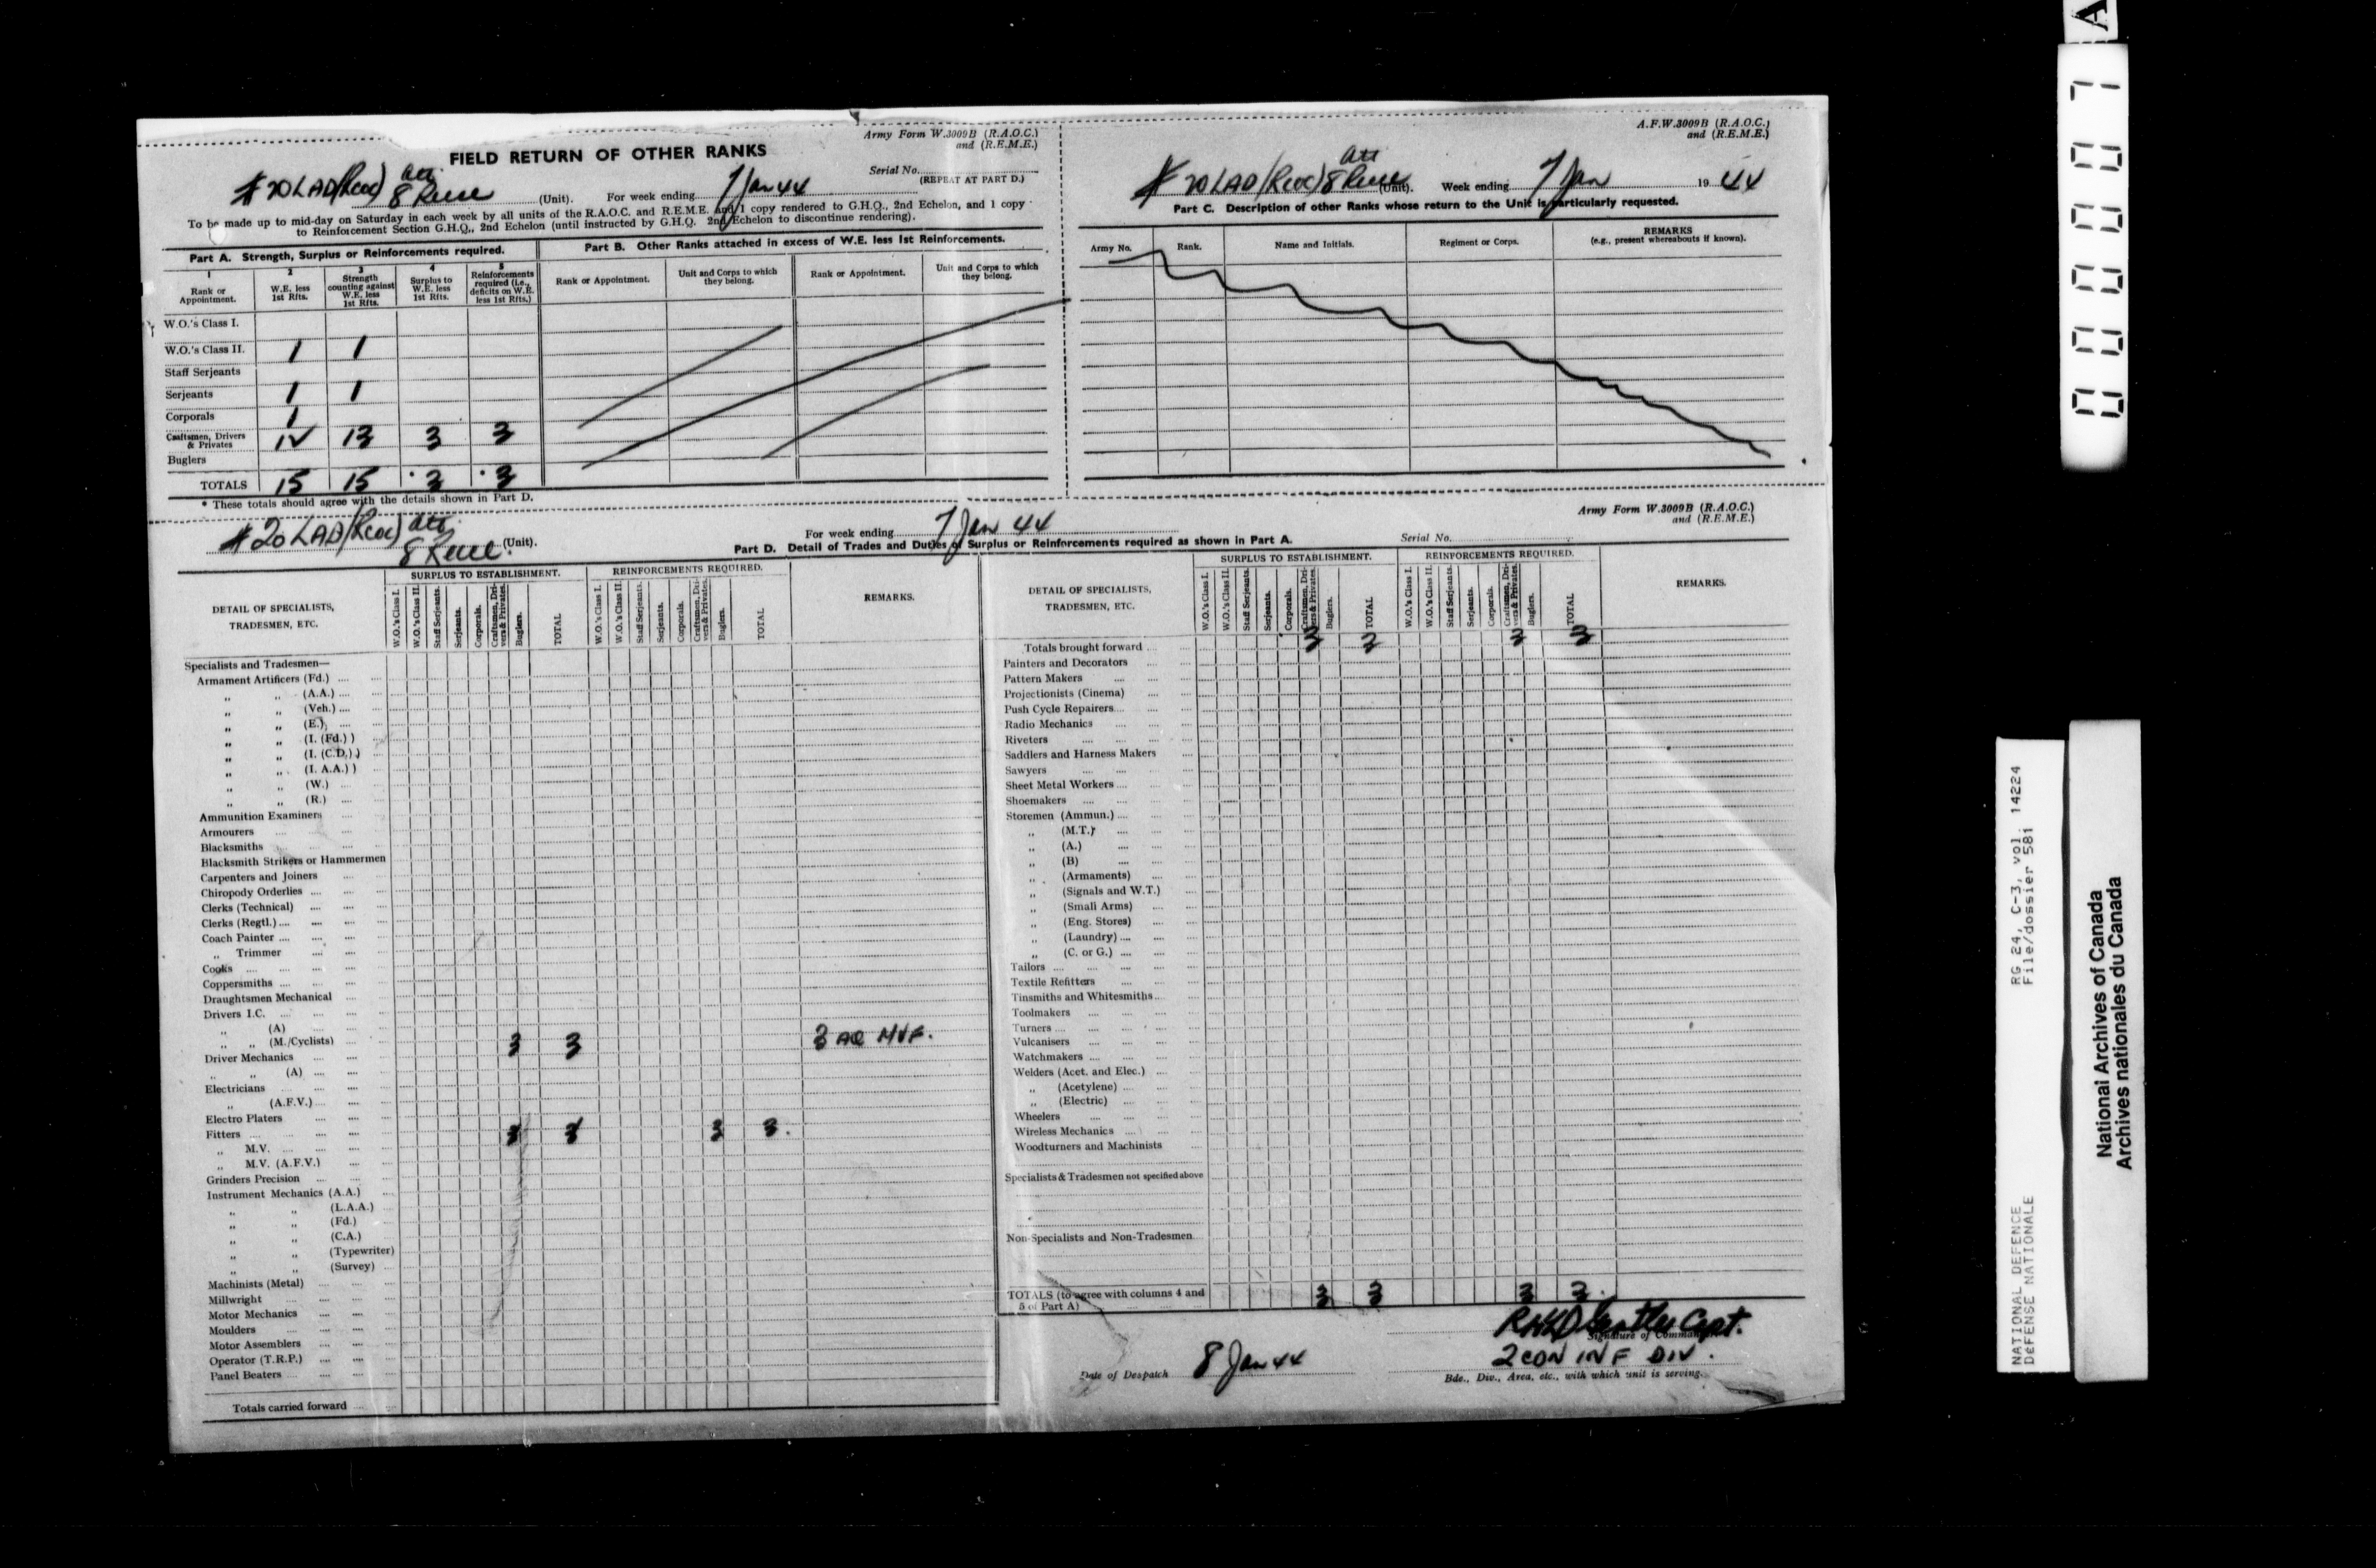 Army Form W.3009B (R.A.O.C.)
and (R.E.M.E.)
FIELD RETURN OF OTHER RANKS
Serial No.
(REPEAT AT PART D.)
# 20 LAD (Rcoc) att 8 Recce (Unit). For week ending 7 Jan 44
To be made up to mid-day on Saturday in each week by all units of the R.A.O.C. and R.E.M.E. and 1 copy rendered to G.H.Q., 2nd Echelon, and 1 copy
to Reinforcement Section G.H.Q., 2nd Echelon (until instructed by G.H.Q. 2nd Echelon to discontinue rendering).
Part A. Strength, Surplus or Reinforcements required.
1 2 3 4 5
Rank or Appointment. W.E. less 1st Rfts. Strength counting against W.E. less 1st Rfts. Surplus to W.E. less 1st Rfts. Reinforcements required (i.e., deficits on W.E. less 1st Rfts.)
W.O.'s Class I.
W.O.'s Class II. 1 1
Staff Serjeants
Serjeants 1 1
Corporals 1
Craftsmen, Drivers & Privates 12 13 3 3
Buglers
TOTALS 15 15 * 3 * 3
* These totals should agree with the details shown in Part D.
Part B. Other Ranks attached in excess of W.E. less 1st Reinforcements.
Rank or Appointment. Unit and Corps to which they belong. Rank or Appointment. Unit and Corps to which they belong.
A.F.W.3009B (R.A.O.C.)
and (R.E.M.E.)
# 20 LAD (Rcoc) att 8 Recce (Unit). Week ending 7 Jan 19 44
Part C. Description of other Ranks whose return to the Unit is particularly requested.
Army No. Rank. Name and Initials. Regiment or Corps. REMARKS
(e.g., present whereabouts if known).
# 20 LAD (Rcoc) att 8 Recce. (Unit).
For week ending 7 Jan 44
Army Form W.3009B (R.A.O.C.)
and (R.E.M.E.)
Serial No.
Part D. Detail of Trades and Duties of Surplus or Reinforcements required as shown in Part A.
DETAIL OF SPECIALISTS, TRADESMEN, ETC.
SURPLUS TO ESTABLISHMENT.
W.O.'s Class I. W.O.'s Class II. Staff Serjeants. Serjeants. Corporals. Craftsmen, Drivers & Privates. Buglers. TOTAL
REINFORCEMENTS REQUIRED.
W.O.'s Class I. W.O.'s Class II. Staff Serjeants. Serjeants. Corporals. Craftsmen, Drivers & Privates. Buglers. TOTAL
REMARKS.
Specialists and Tradesmen—
Armament Artificers (Fd.)
,, ,, (A.A.)
,, ,, (Veh.)
,, ,, (E.)
,, ,, (I. (Fd.) )
,, ,, (I. (C.D.) )
,, ,, (I. A.A.) )
,, ,, (W.)
,, ,, (R.)
Ammunition Examiners
Armourers
Blacksmiths
Blacksmith Strikers or Hammermen
Carpenters and Joiners
Chiropody Orderlies
Clerks (Technical)
Clerks (Regtl.)
Coach Painter
,, Trimmer
Cooks
Coppersmiths
Draughtsmen Mechanical
Drivers I.C.
,, (A)
,, ,, (M./Cyclists) 3 3 3 are MVF.
Driver Mechanics
,, ,, (A)
Electricians
,, (A.F.V.)
Electro Platers
Fitters 3 3 3 3.
,, M.V.
,, M.V. (A.F.V.)
Grinders Precision
Instrument Mechanics (A.A.)
,, ,, (L.A.A.)
,, ,, (Fd.)
,, ,, (C.A.)
,, ,, (Typewriter)
,, ,, (Survey)
Machinists (Metal)
Millwright
Motor Mechanics
Moulders
Motor Assemblers
Operator (T.R.P.)
Panel Beaters
Totals carried forward
DETAIL OF SPECIALISTS, TRADESMEN, ETC.
SURPLUS TO ESTABLISHMENT.
W.O.'s Class I. W.O.'s Class II. Staff Serjeants. Serjeants. Corporals. Craftsmen, Drivers & Privates. Buglers. TOTAL
REINFORCEMENTS REQUIRED.
W.O.'s Class I. W.O.'s Class II. Staff Serjeants. Serjeants. Corporals. Craftsmen, Drivers & Privates. Buglers. TOTAL
REMARKS.
Totals brought forward 3 3 3 3
Painters and Decorators
Pattern Makers
Projectionists (Cinema)
Push Cycle Repairers
Radio Mechanics
Riveters
Saddlers and Harness Makers
Sawyers
Sheet Metal Workers
Shoemakers
Storemen (Ammun.)
,, (M.T.)
,, (A.)
,, (B)
,, (Armaments)
,, (Signals and W.T.)
,, (Small Arms)
,, (Eng. Stores)
,, (Laundry)
,, (C. or G.)
Tailors
Textile Refitters
Tinsmiths and Whitesmiths
Toolmakers
Turners
Vulcanisers
Watchmakers
Welders (Acet. and Elec.)
,, (Acetylene)
,, (Electric)
Wheelers
Wireless Mechanics
Woodturners and Machinists
Specialists & Tradesmen not specified above
Non-Specialists and Non-Tradesmen
TOTALS (to agree with columns 4 and 5 of Part A) 3 3 3 3.
Capt.
Signature of Commander
2 CDN INF DIV.
Date of Despatch 8 Jan 44
Bde., Div., Area, etc., with which unit is serving.
A
00007
NATIONAL DEFENCE RG 24, C-3, vol. 14224
DÉFENSE NATIONALE File/dossier 581
National Archives of Canada
Archives nationales du Canada